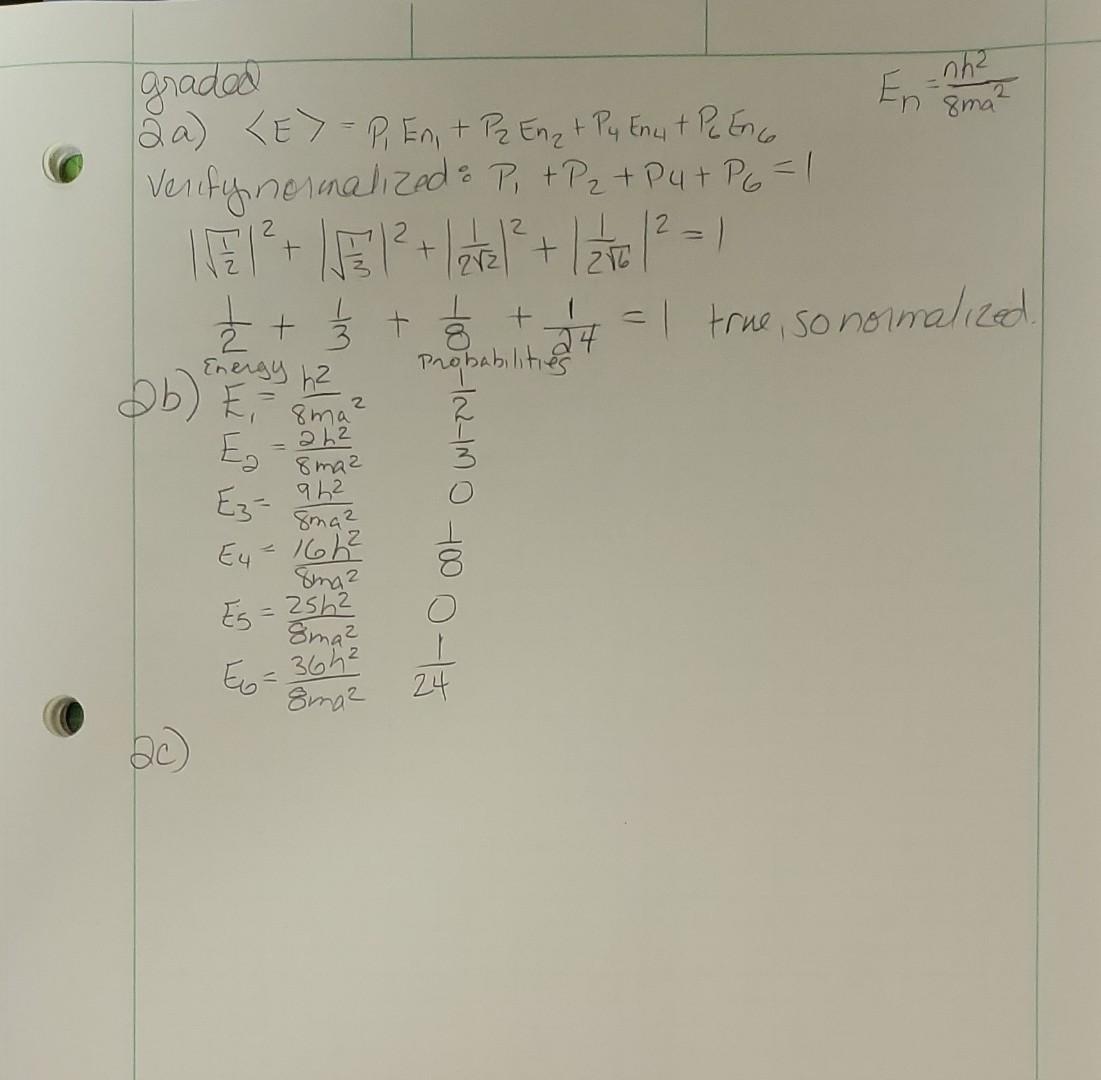 graded
E_n = nh²/8ma²
2a) <E> = P₁ En₁ + P₂ En₂ + P₄ En₄ + P₆ En₆
Verify normalized: P₁ + P₂ + P4 + P₆ = 1
|√(1/2)|² + |√(1/3)|² + |1/(2√2)|² + |1/(2√6)|² = 1
1/2 + 1/3 + 1/8 + 1/24 = 1 true, so normalized.
Energy Probabilities
2b) E₁ = h²/8ma² 1/2
E₂ = 2h²/8ma² 1/3
E₃ = 9h²/8ma² 0
E₄ = 16h²/8ma² 1/8
E₅ = 25h²/8ma² 0
E₆ = 36h²/8ma² 1/24
2c)